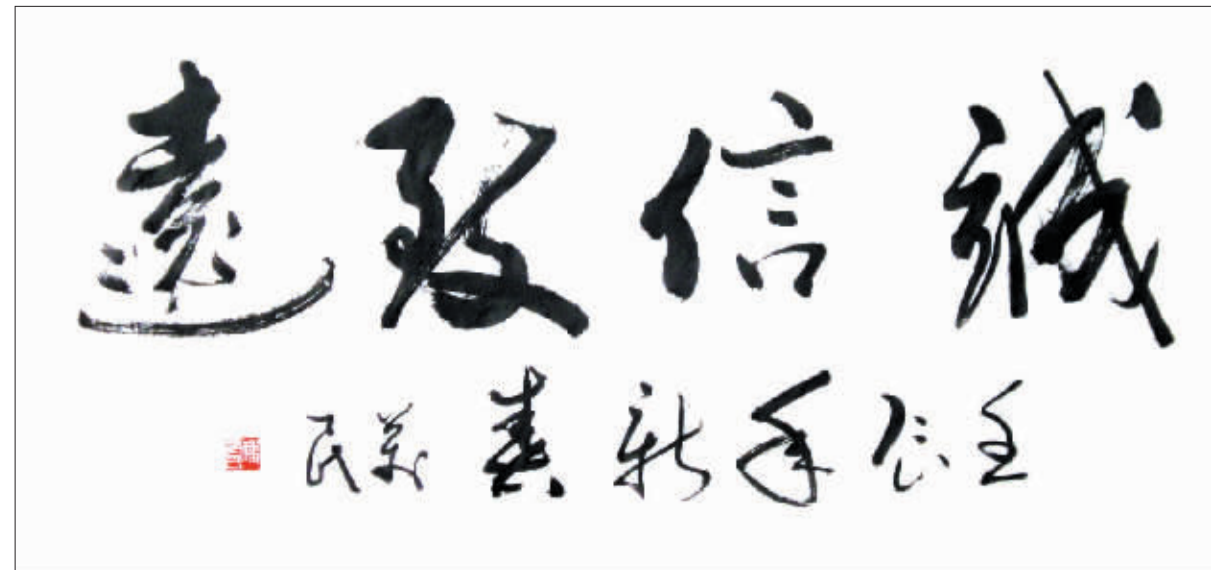 誠信致遠
壬辰年新春萬民